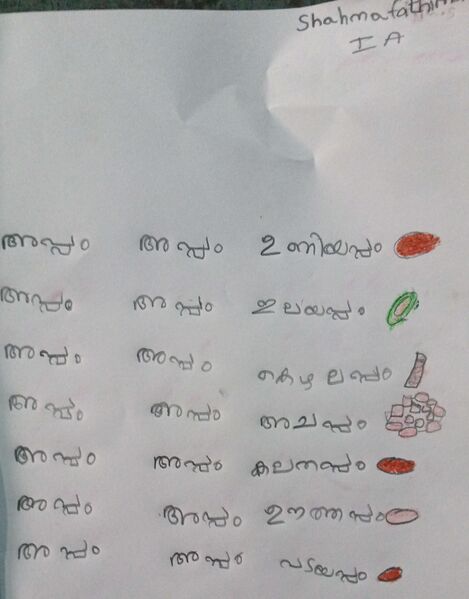 Shahmafathima
I A
അപ്പം അപ്പം ഉണിയപ്പം
അപ്പം അപ്പം ഇലയപ്പം
അപ്പം അപ്പം കുഴലപ്പം
അപ്പം അപ്പം അചപ്പം
അപ്പം അപ്പം കലതപ്പം
അപ്പം അപ്പം ഊത്തപ്പം
അപ്പം അപ്പം വടയപ്പം